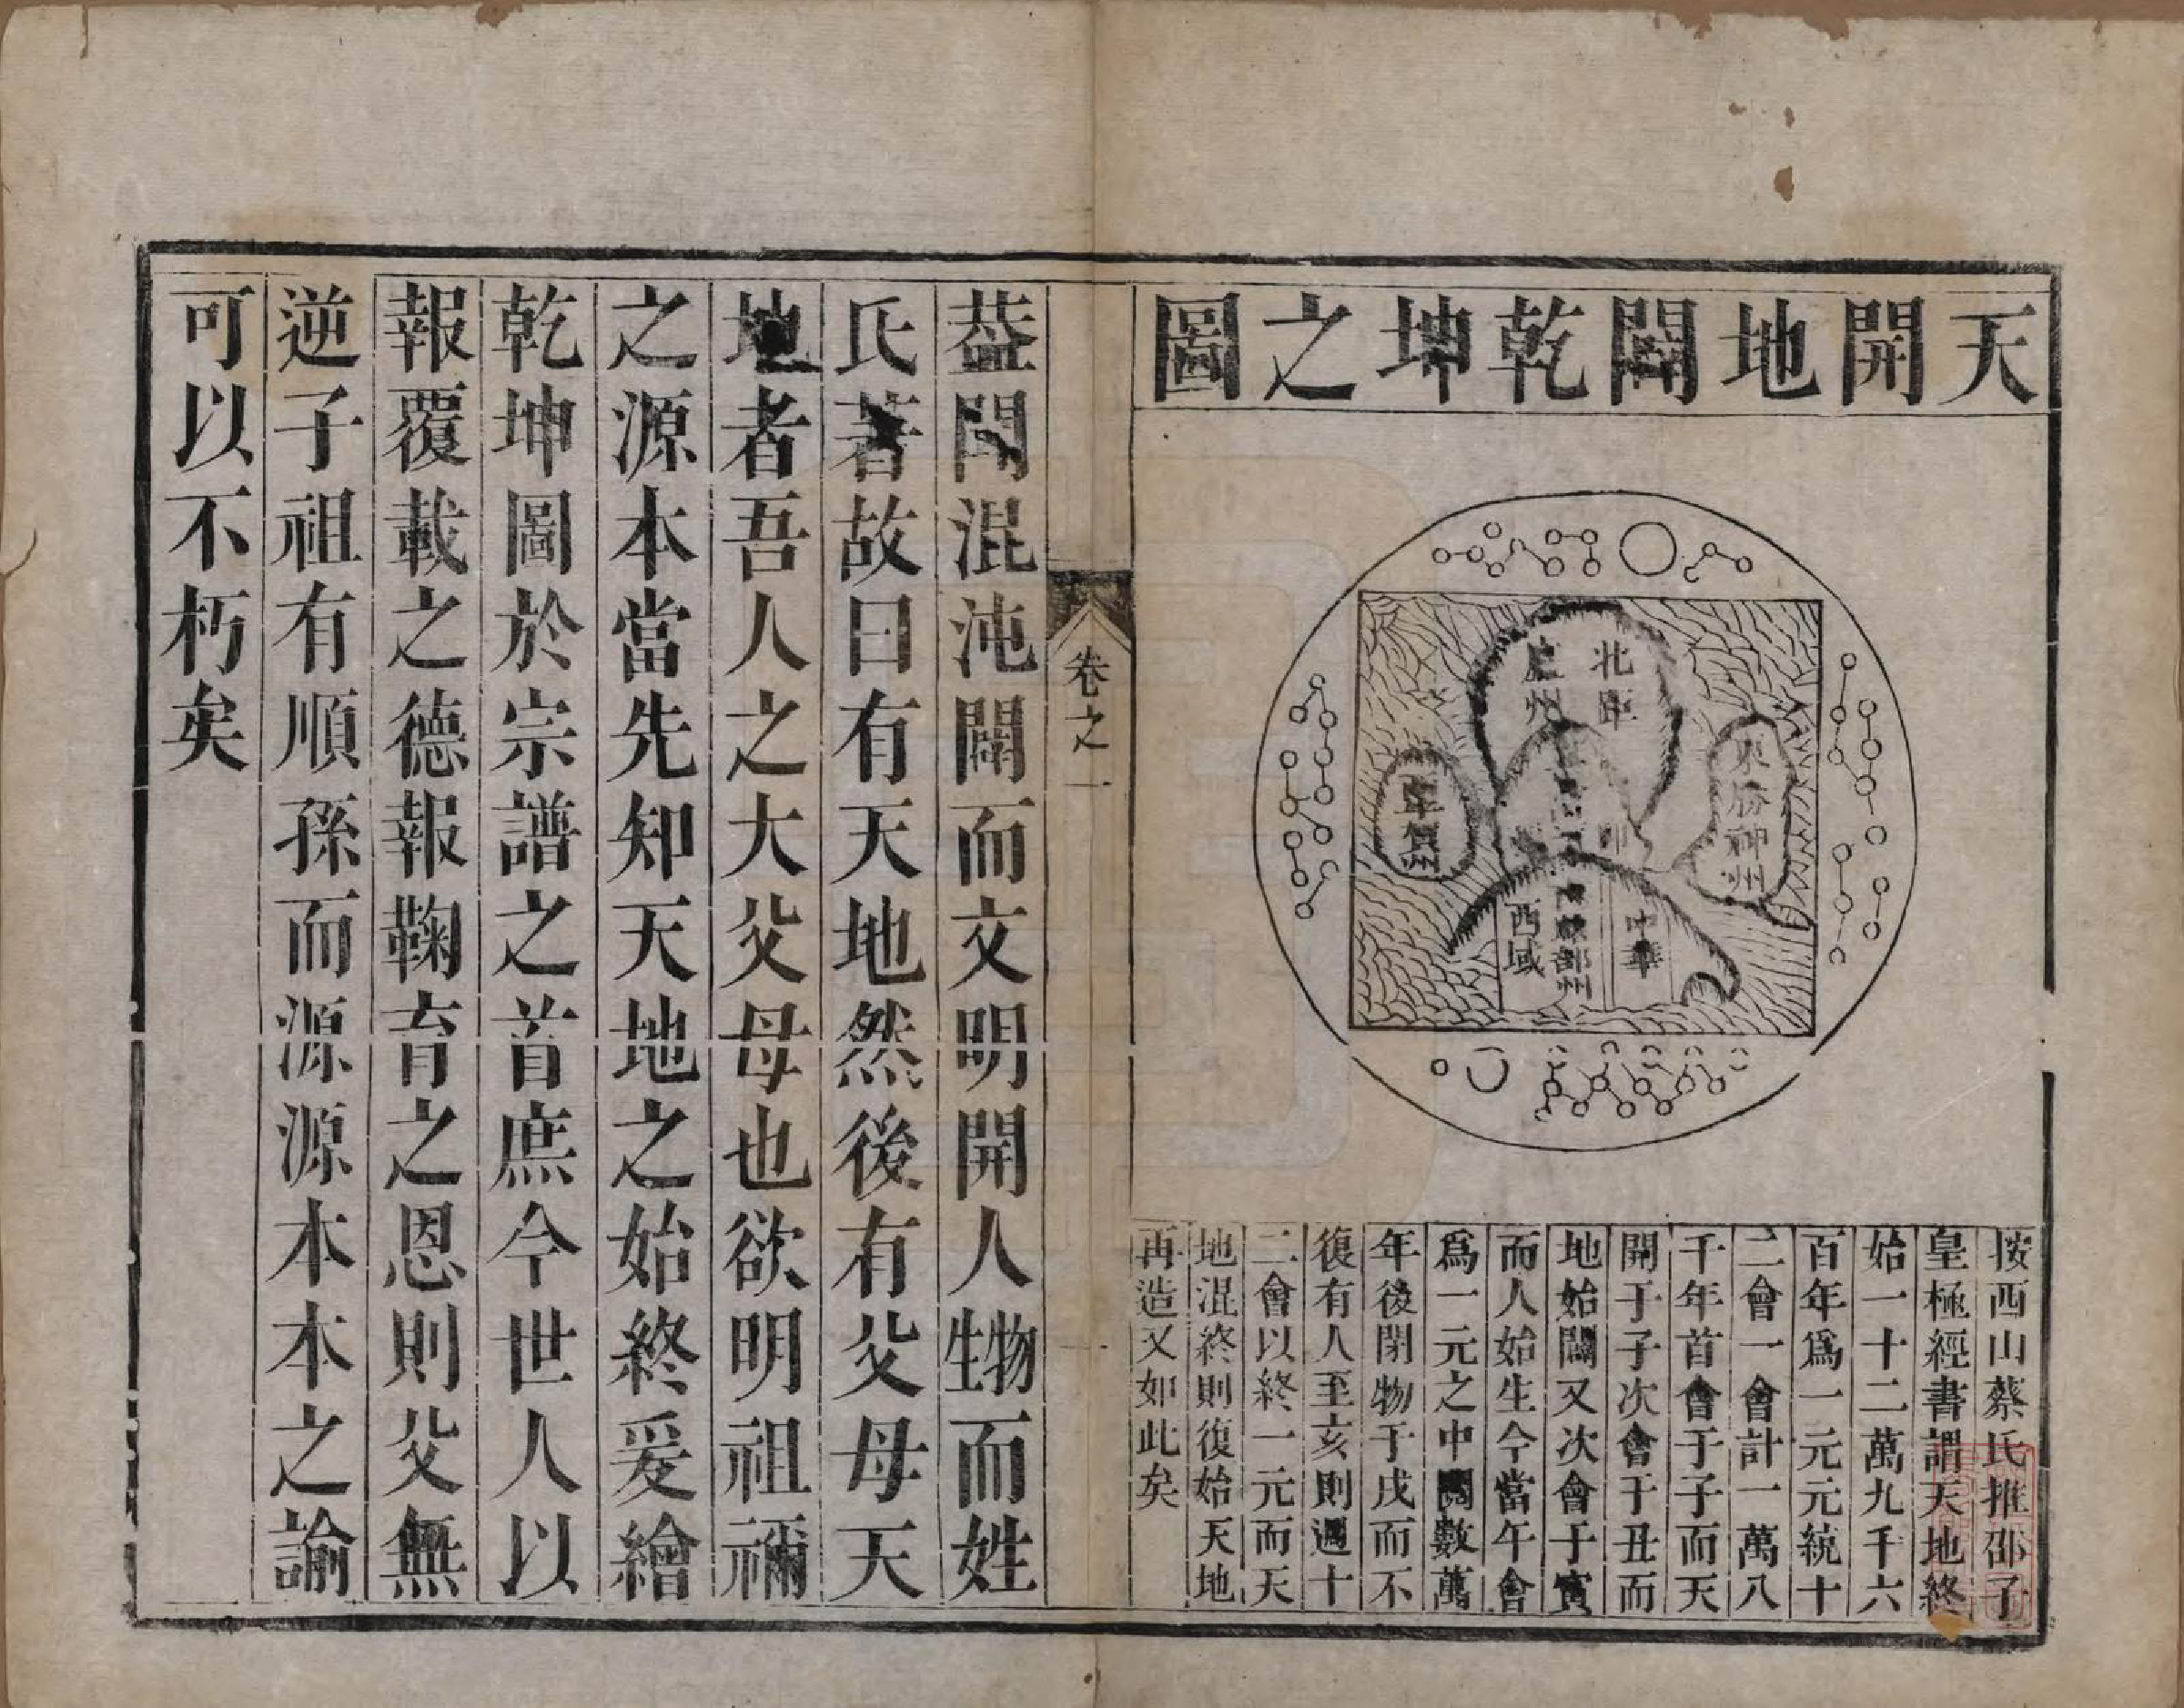 天開地闢乾坤之圖
北
州
東勝神州
中華
部州
西域
按西山蔡氏推邵子
皇極經書謂天地終
始一十二萬九千六
百年爲一元元統十
二會一會計一萬八
千年首會于子而天
開于子次會于丑而
地始闢又次會于寅
而人始生今當午會
爲一元之中闕數萬
年後閉物于戌而不
復有人至亥則週十
二會以終一元而天
地混終則復始天地
再造又如此矣
卷之一
一
葢聞混沌闢而文明開人物生而姓
氏著故曰有天地然後有父母天
地者吾人之大父母也欲明祖禰
之源本當先知天地之始終爰繪
乾坤圖於宗譜之首庶今世人以
報覆載之德報鞠育之恩則父無
逆子祖有順孫而源源本本之諭
可以不朽矣